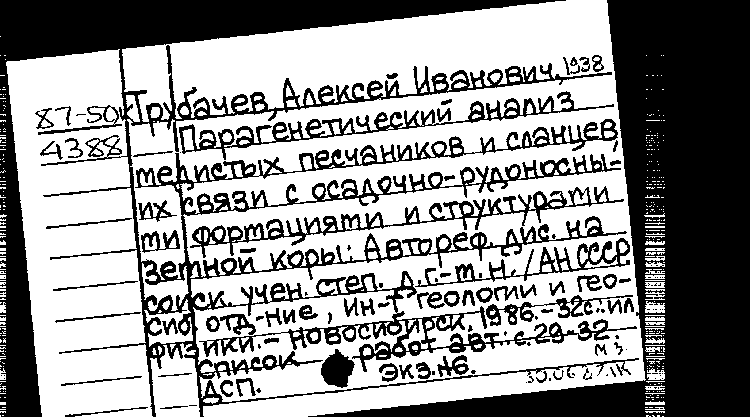 Трубачев, Алексей Иванович, 1938
87-50к
Парагенетический анализ
4388
медистых песчаников и сланцев,
их связи с осадочно-рудоносны-
ми формациями и структурами
земной коры: Автореф. дис. на
соиск. учен. степ. д.г.-м.н. / АН СССР.
Сиб. отд-ние, Ин-т геологии и гео-
физики. - Новосибирск, 1986. - 32с.: ил.
Список работ авт.: с. 29-32.
ДСП. Экз. №6. МЗ
30.06.87. 1К